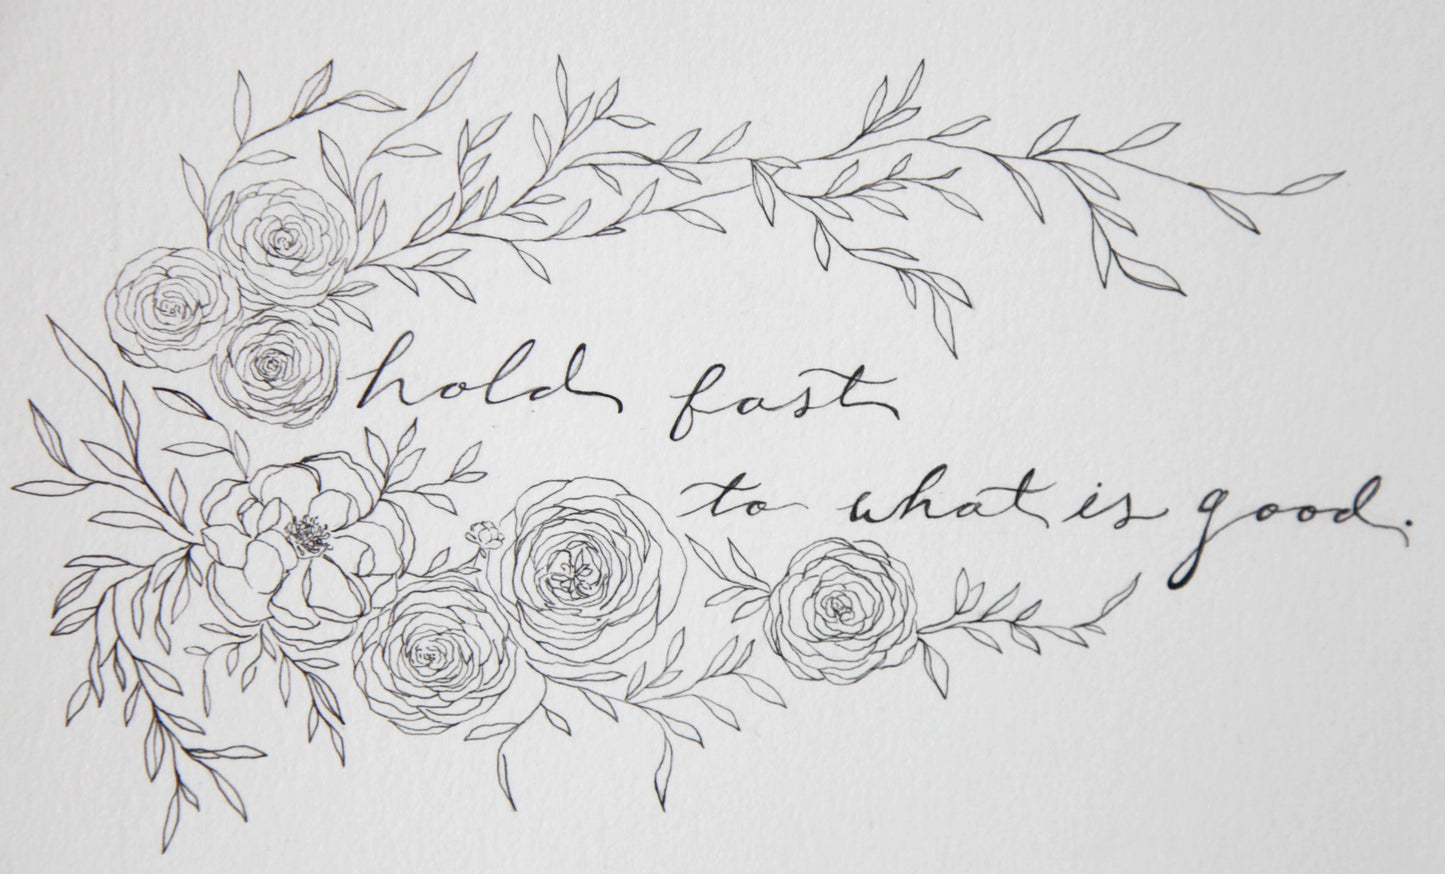 hold fast
to what is good.